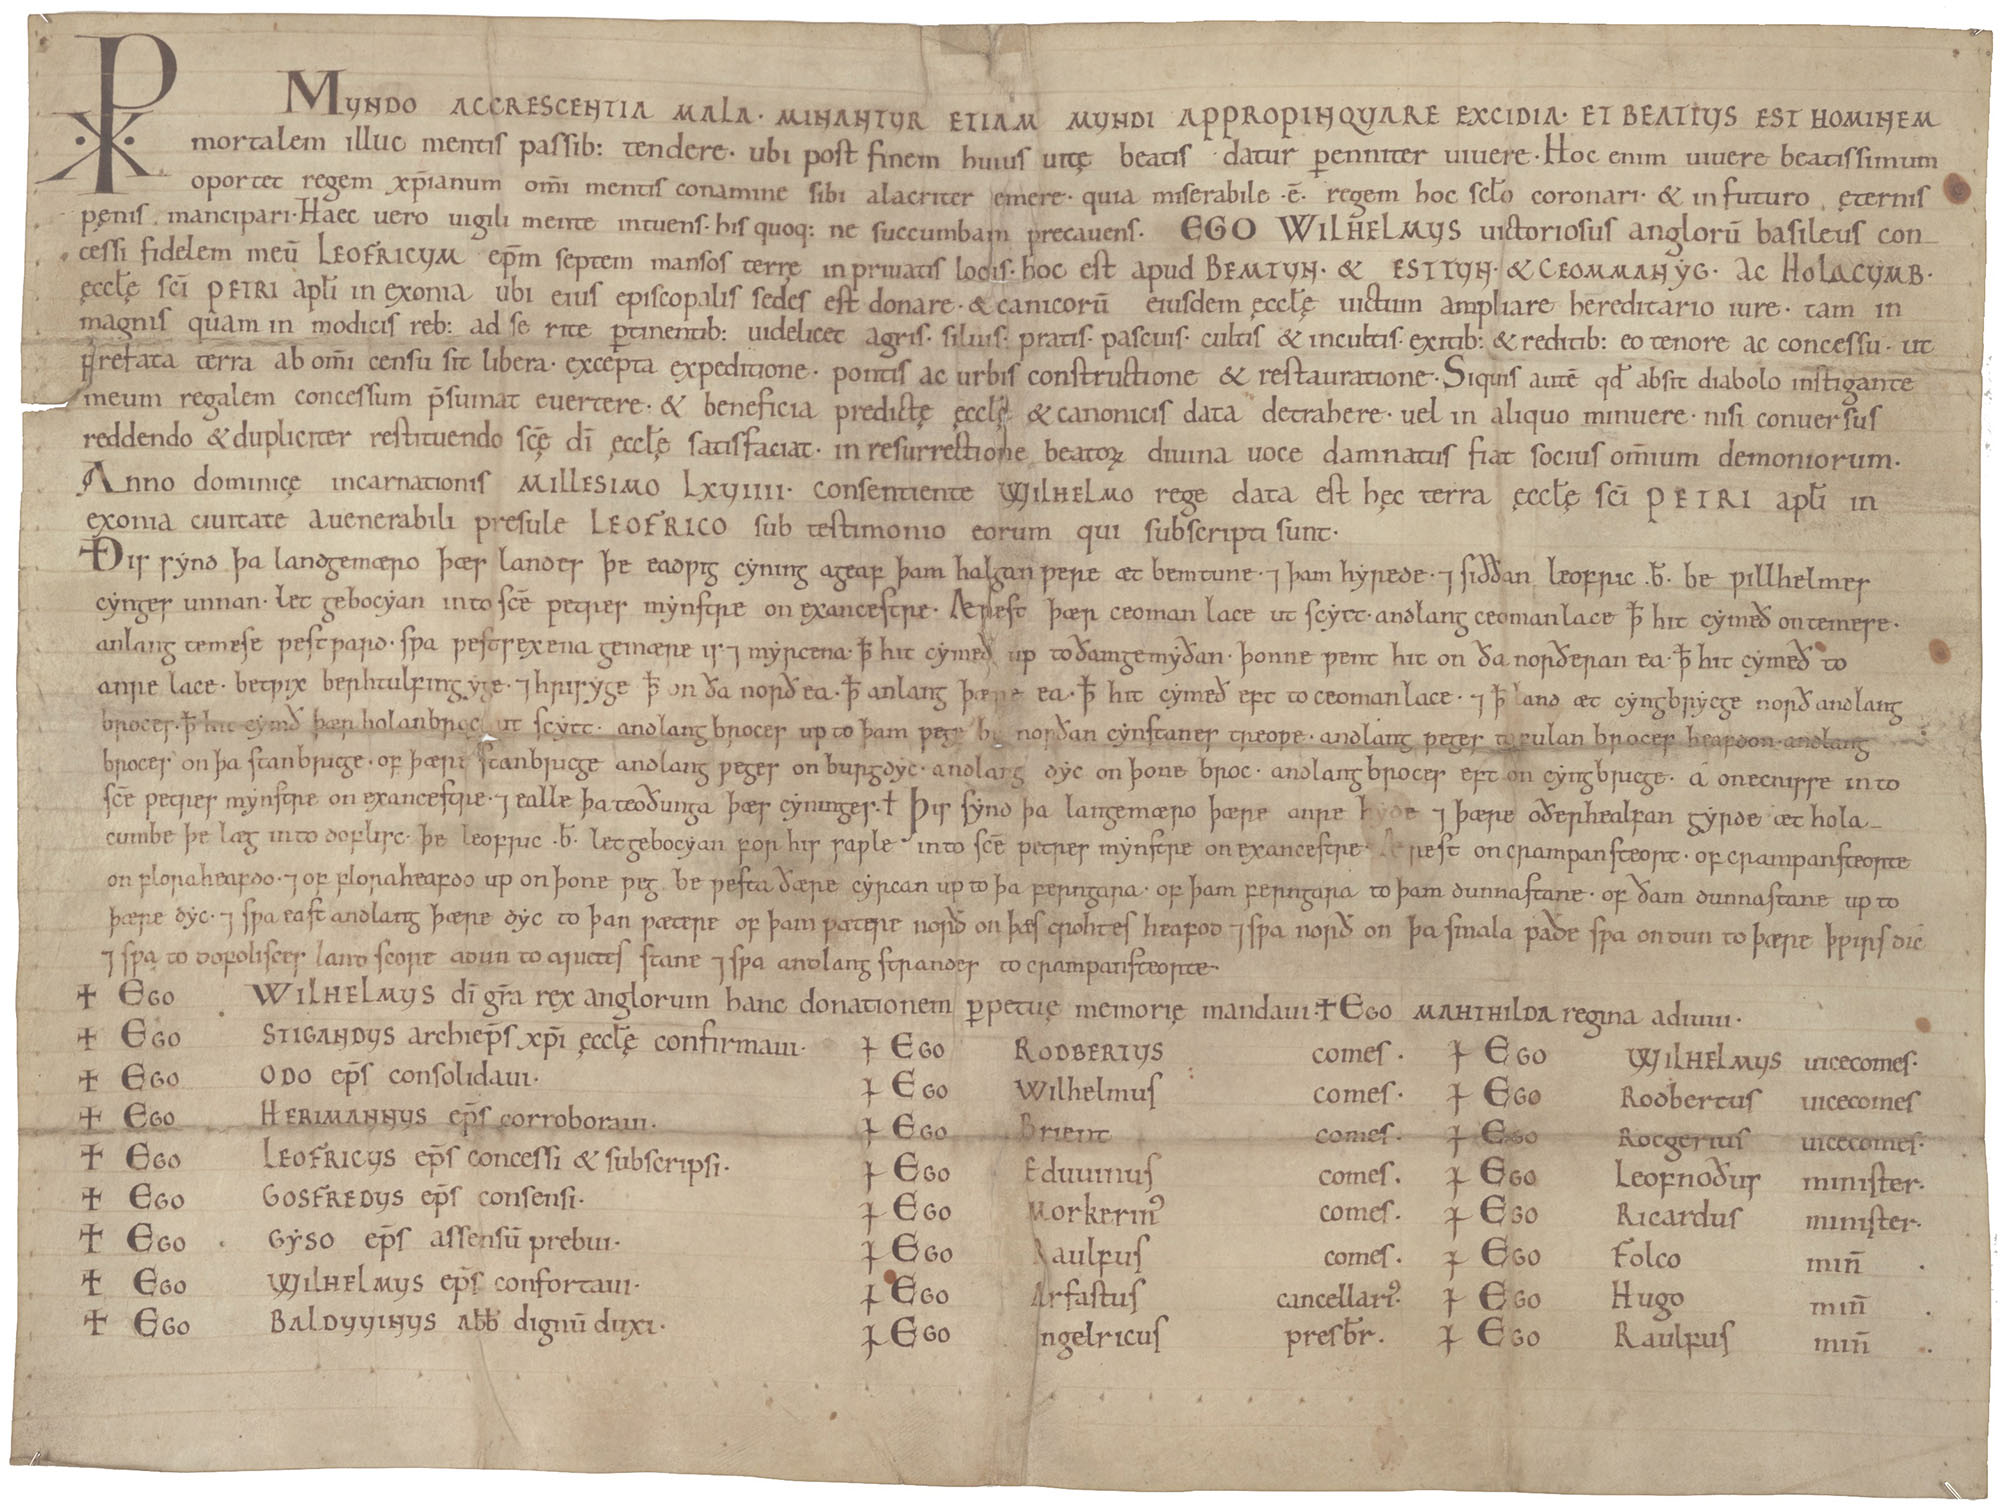 MVNDO ACCRESCENTIA MALA· MINANTVR ETIAM MVNDI APPROPINQVARE EXCIDIA· ET BEATIVS EST HOMINEM
mortalem illuc mentis passib: tendere· ubi post finem huius uitę beatis datur ꝑenniter uiuere· Hoc enim uiuere beatissimum
oportet regem xp̄ianum om̄i mentis conamine sibi alacriter emere· quia miserabile ·ē· regem hoc scłō coronari· & in futuro ęternis
pęnis mancipari· Haec uero uigili mente intuens· his quoq: ne succumbam precauens· EGO WILHELMVS uictoriosus anglorū basileus con-
cessi fidelem meū LEOFRICVM ep̄m septem mansos terrę in priuatis locis· hoc est apud BEMTVN· & ESTTVN· & CEOMMANẏG· AC HOLACVMB·
ęccłę sc̄i PETRI apłi in exonia ubi eius episcopalis sedes est donare· & canicorū eiusdem ęccłę uictum ampliare hereditario iure· tam in
magnis quam in modicis reb: ad se rite ꝑtinentib: uidelicet agris· siluis· pratis· pascuis· cultis & incultis· exitib: & reditib: eo tenore ac concessu· ut
p̄refata terra ab om̄i censu sit libera· excepta expeditione· pontis ac urbis constructione & restauratione· Siquis autē qđ absit diabolo instigante
meum regalem concessum p̄sumat euertere· & beneficia predictę ęccłę & canonicis data detrahere· uel in aliquo minuere· nisi conuersus
reddendo & dupliciter restituendo sc̄ę dī ęccłę satisfaciat· in resurrectione beatoꝝ diuina uoce damnatus fiat socius om̄ium demoniorum·
Anno dominicę incarnationis MILLESIMO LXVIIII· consentiente WILHELMO rege data est hęc terra ęccłę sc̄i PETRI apłi in
exonia ciuitate a uenerabili presule LEOFRICO sub testimonio eorum qui subscripti sunt·
Ðis sẏnd þa landgemæro þæs landes þe eadƿig cẏning ageaf þam halgan were æt bemtune· ⁊ þam hẏrede· ⁊ siððan leofric ·b̄· be ƿillhelmes
cẏnges unnan· let gebocẏan into sc̄e petres mẏnstre on exancestre· Ærest þær ceoman lace ut scẏtt· andlang ceomanlace ꝥ hit cẏmeð on temese·
anlang temese ƿestƿard· sƿa ƿestsexena gemære is ⁊ mẏrcena· ꝥ hit cẏmeð up to ðamgemẏðan· þonne ƿent hit on ða norðeran ea· ꝥ hit cẏmeð to
anre lace· betƿix berhtulfing ẏge· ⁊ hrisẏge ꝥ on ða norð ea· ꝥ anlang þære ea· ꝥ hit cẏmeð eft to ceomanlace· ⁊ ꝥ land æt cẏngbrẏcge norð andlang
broces· ꝥ hit cẏmð þær holanbroc ut scẏtt· andlang broces up to þam ƿege be norðan cẏnstanes treoƿe· andlang ƿeges to fulan broces heafdon· andlang
broces on þa stanbricge· of þære stanbricge andlang ƿeges on burgdẏc· andlang dẏc on þone broc· andlang broces eft on cẏngbricge· a onecnisse into
sc̄e petres mẏnstre on exancestre· ⁊ ealle þa teoðunga þæs cẏninges· ✝ Þis sẏnd þa langemæro þære anre hẏde ⁊ þære oðerhealfan gẏrde æt hola-
cumbe þe læg into doflisc· þe leofric ·b̄· let gebocẏan for his saƿle into sc̄e petres mẏnstre on exancestre· Ærest on crampansteort· of crampansteorte
on floraheafdo· ⁊ of floraheafdo up on þone ƿeg be ƿesta ðære cẏrcan up to þa ferngara· of þam ferngara to þam dunnastane· of ðam dunnastane up to
þære dẏc· ⁊ sƿa east andlang þære dẏc to þan ƿætere of þam ƿætere norð on þæs crohtes heafod ⁊ sƿa norð on þa smala paðe sƿa on dun to þære þƿirs dic
⁊ sƿa to dofolisces land score adun to stane ⁊ sƿa andlang strandes to crampansteorte·
✝ EGO WILHELMVS dī gr̄a rex anglorum hanc donationem ꝑpetuę memorię mandaui· ✝ EGO MAHTHILDA regina adiuui·
✝ EGO STIGANDVS archiep̄s xp̄i ęccłę confirmaui· ✝ EGO RODBERTVS comes· ✝ EGO WILHELMVS uicecomes·
✝ EGO ODO ep̄s consolidaui· ✝ EGO Wilhelmus comes· ✝ EGO Rodbertus uicecomes
✝ EGO HERIMANNVS ep̄s corroboraui· ✝ EGO Brient comes· ✝ EGO Rocgerius uicecomes·
✝ EGO LEOFRICVS ep̄s concessi & subscripsi· ✝ EGO Eduuinus comes· ✝ EGO Leofnoðus minister·
✝ EGO GOSFREDVS ep̄s consensi· ✝ EGO Morkerinꝰ comes· ✝ EGO Ricardus minister·
✝ EGO GẏSO ep̄s assensū prebui· ✝ EGO Raulfus comes· ✝ EGO Folco min̄·
✝ EGO WILHELMVS ep̄s confortaui· ✝ EGO Arfastus cancellariꝰ· ✝ EGO Hugo min̄·
✝ EGO BALDVVINVS abb̄ dignū duxi· ✝ EGO Ingelricus presb̄r· ✝ EGO Raulfus min̄·